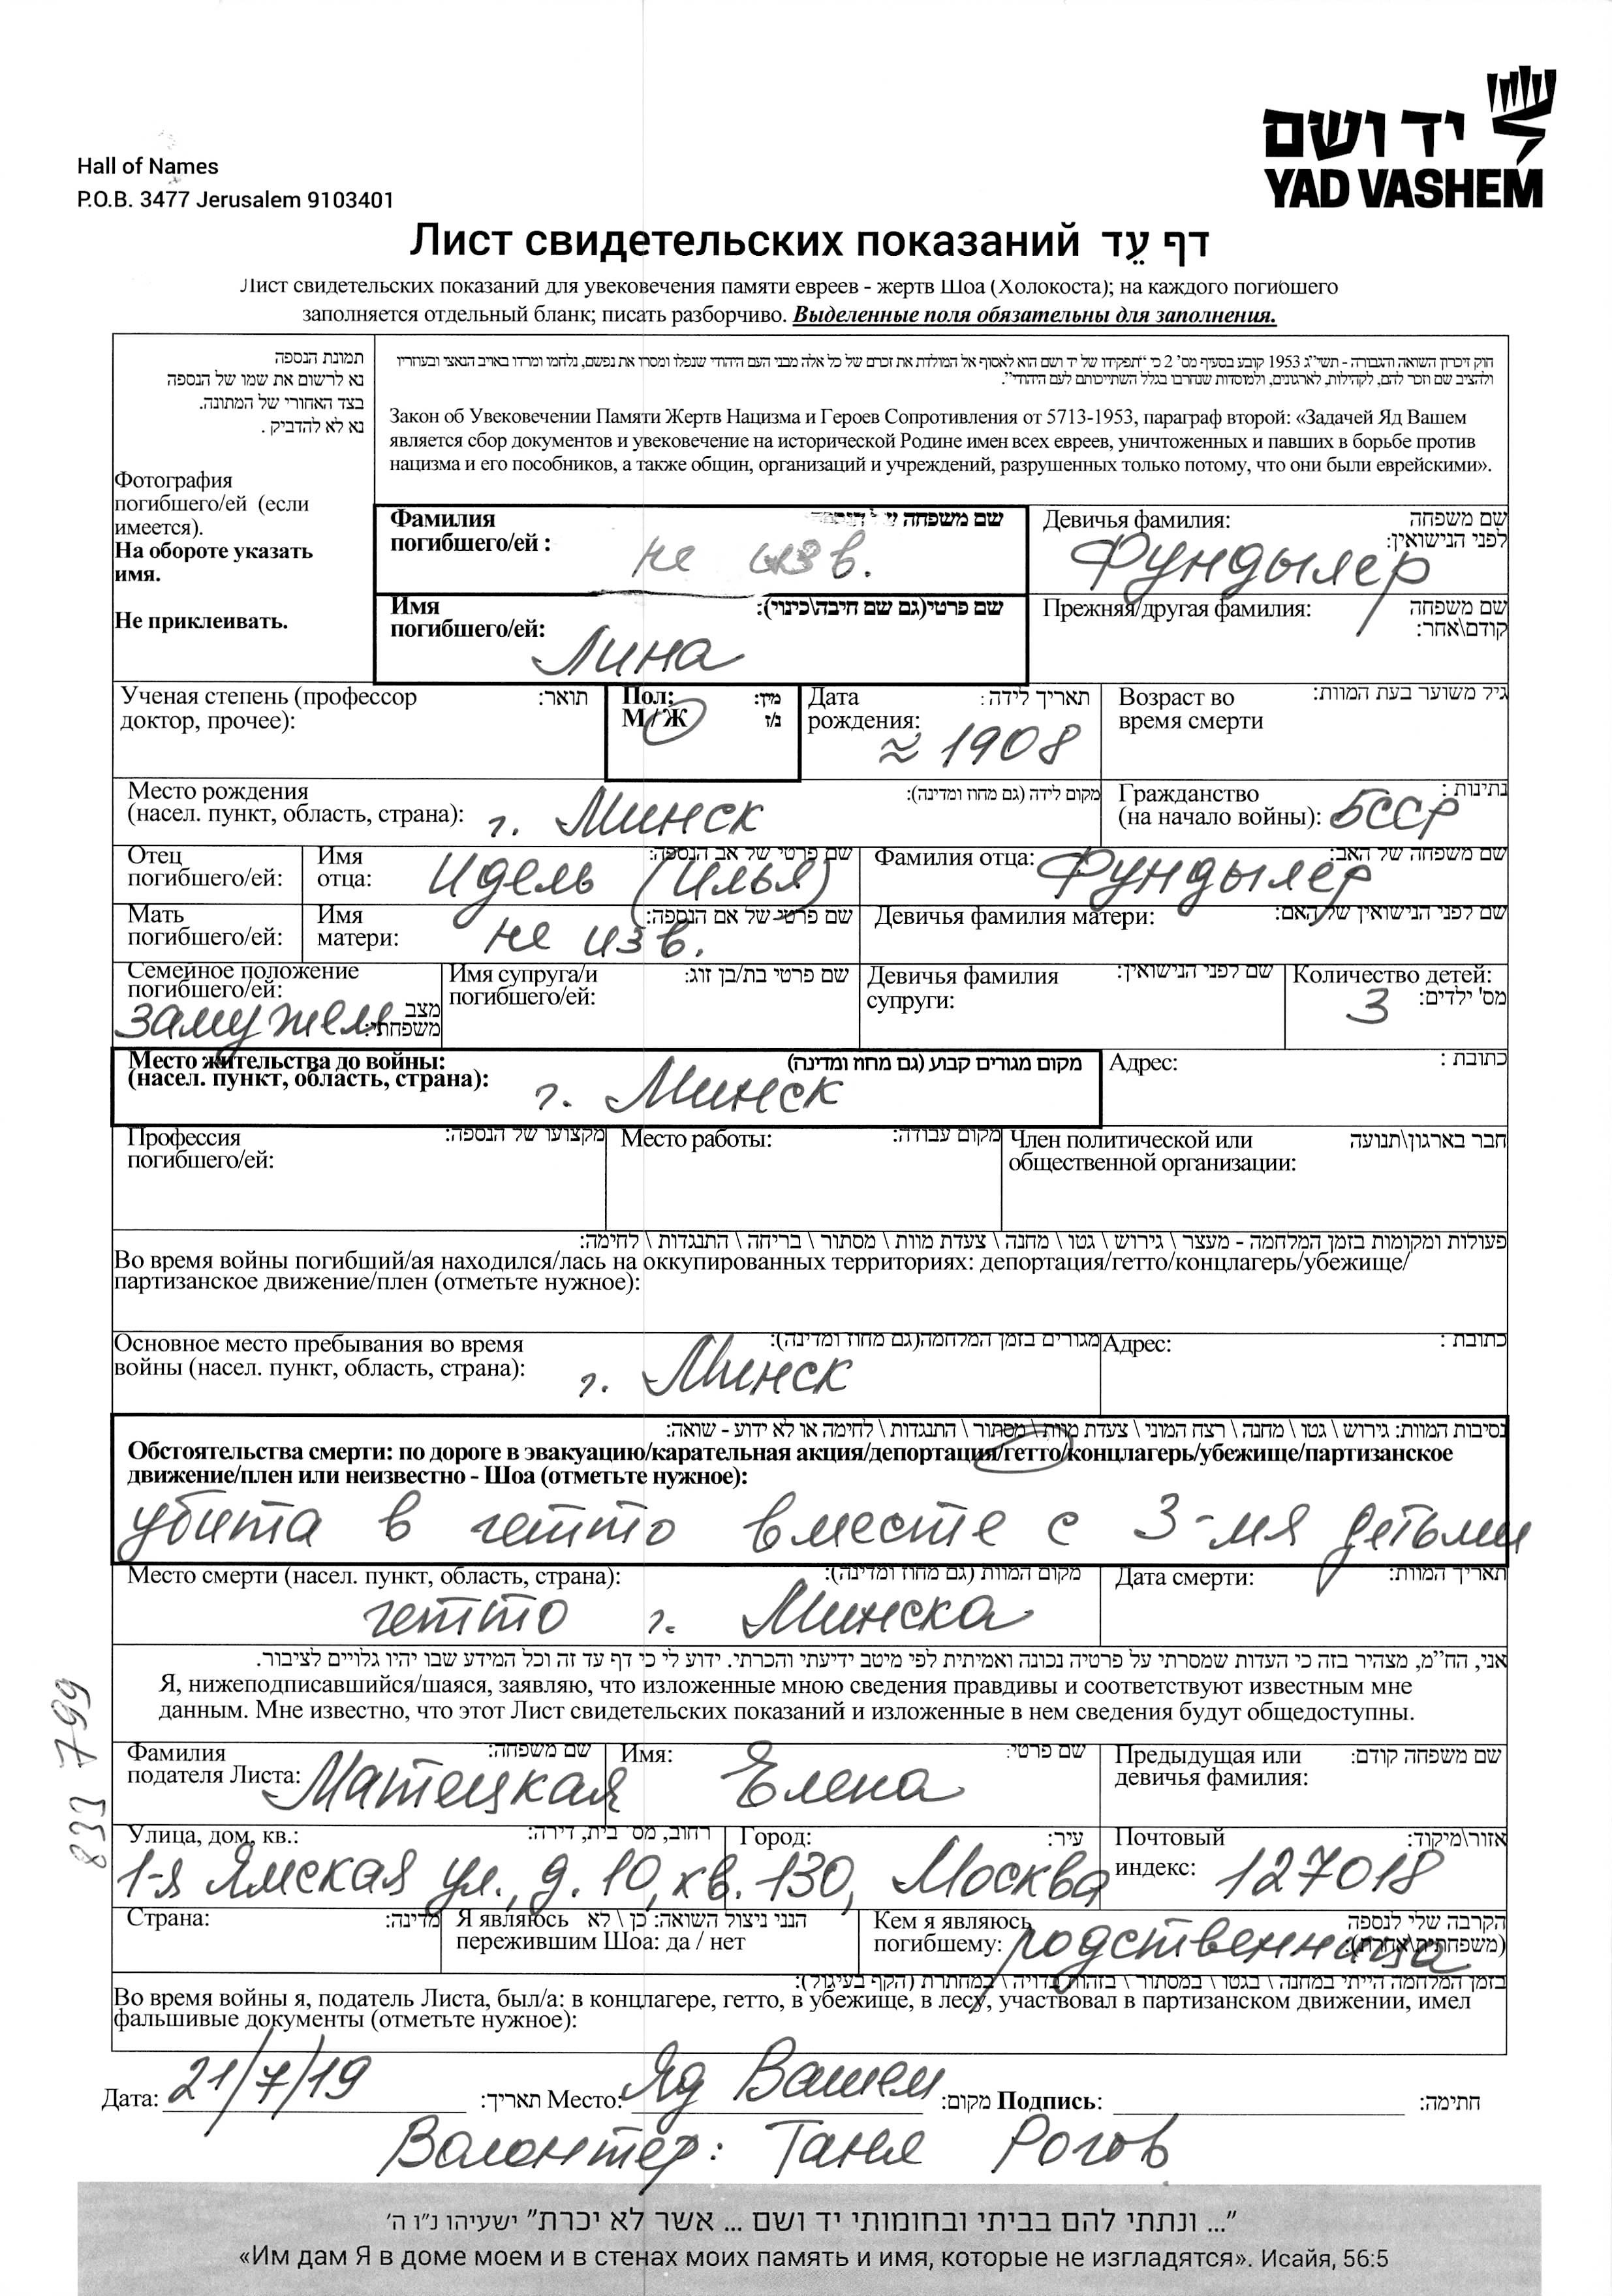 יד ושם
YAD VASHEM
Hall of Names
P.O.B. 3477 Jerusalem 9103401
Лист свидетельских показаний דף עֵד
Лист свидетельских показаний для увековечения памяти евреев - жертв Шоа (Холокоста); на каждого погибшего
заполняется отдельный бланк; писать разборчиво. Выделенные поля обязательны для заполнения.
תמונת הנספה
נא לרשום את שמו של הנספה
בצד האחורי של המתונה.
נא לא להדביק .
Фотография
погибшего/ей (если
имеется).
На обороте указать
имя.
Не приклеивать.
חוק זיכרון השואה והגבורה - תשי"ג 1953 קובע בסעיף מס' 2 כי "תפקידו של יד ושם הוא לאסוף אל המולדת את זכרם של כל אלה מבני העם היהודי שנפלו ומסרו את נפשם, נלחמו ומרדו באויב הנאצי ובעוזריו
ולהציב שם וזכר להם, לקהילות, לארגונים, ולמוסדות שנחרבו בגלל השתייכותם לעם היהודי".
Закон об Увековечении Памяти Жертв Нацизма и Героев Сопротивления от 5713-1953, параграф второй: «Задачей Яд Вашем
является сбор документов и увековечение на исторической Родине имен всех евреев, уничтоженных и павших в борьбе против
нацизма и его пособников, а также общин, организаций и учреждений, разрушенных только потому, что они были еврейскими».
Фамилия שם משפחה של הנספה
погибшего/ей : не изв.
Девичья фамилия: שם משפחה
לפני הנישואין:
Фундылер
Имя שם פרטי(גם שם חיבה\כינוי):
погибшего/ей: Лина
Прежняя/другая фамилия: שם משפחה
קודם\אחר:
Ученая степень (профессор תואר:
доктор, прочее):
Пол: מין:
М / Ж ז/נ
Дата תאריך לידה :
рождения: ≈ 1908
Возраст во גיל משוער בעת המוות:
время смерти
Место рождения מקום לידה (גם מחוז ומדינה):
(насел. пункт, область, страна): г. Минск
Гражданство נתינות :
(на начало войны): БССР
Отец
погибшего/ей:
Имя שם פרטי של אב הנספה:
отца: Идель (Илья)
Фамилия отца: שם משפחה של האב:
Фундылер
Мать
погибшего/ей:
Имя שם פרטי של אם הנספה:
матери: не изв.
Девичья фамилия матери: שם לפני הנישואין של האם:
Семейное положение
погибшего/ей:
замужем מצב
משפחתי:
Имя супруга/и שם פרטי בת/בן זוג:
погибшего/ей:
Девичья фамилия שם לפני הנישואין:
супруги:
Количество детей:
3 מס' ילדים:
Место жительства до войны: מקום מגורים קבוע (גם מחוז ומדינה)
(насел. пункт, область, страна): г. Минск
Адрес: כתובת :
Профессия מקצועו של הנספה:
погибшего/ей:
Место работы: מקום עבודה:
Член политической или חבר בארגון\תנועה
общественной организации:
פעולות ומקומות בזמן המלחמה - מעצר \ גירוש \ גטו \ מחנה \ צעדת מוות \ מסתור \ בריחה \ התנגדות \ לחימה:
Во время войны погибший/ая находился/лась на оккупированных территориях: депортация/гетто/концлагерь/убежище/
партизанское движение/плен (отметьте нужное):
Основное место пребывания во время מגורים בזמן המלחמה(גם מחוז ומדינה):
войны (насел. пункт, область, страна): г. Минск
Адрес: כתובת :
נסיבות המוות: גירוש \ גטו \ מחנה \ רצח המוני \ צעדת מוות \ מסתור \ התנגדות \ לחימה או לא ידוע - שואה:
Обстоятельства смерти: по дороге в эвакуацию/карательная акция/депортация/гетто/концлагерь/убежище/партизанское
движение/плен или неизвестно - Шоа (отметьте нужное):
убита в гетто вместе с 3-мя детьми
Место смерти (насел. пункт, область, страна): מקום המוות (גם מחוז ומדינה):
гетто г. Минска
Дата смерти: תאריך המוות:
אני, הח"מ, מצהיר בזה כי העדות שמסרתי על פרטיה נכונה ואמיתית לפי מיטב ידיעתי והכרתי. ידוע לי כי דף עד זה וכל המידע שבו יהיו גלויים לציבור.
Я, нижеподписавшийся/шаяся, заявляю, что изложенные мною сведения правдивы и соответствуют известным мне
данным. Мне известно, что этот Лист свидетельских показаний и изложенные в нем сведения будут общедоступны.
833 799
Фамилия שם משפחה:
подателя Листа: Матецкая
Имя: שם פרטי:
Елена
Предыдущая или שם משפחה קודם:
девичья фамилия:
Улица, дом, кв.: רחוב, מס' בית, דירה:
Город: עיר:
1-я Ямская ул., д. 10, кв. 130, Москва
Почтовый אזור\מיקוד:
индекс: 127018
Страна: מדינה:
Я являюсь הנני ניצול השואה: כן \ לא
пережившим Шоа: да / нет
Кем я являюсь הקרבה שלי לנספה
погибшему: родственница (משפחתית\אחרת):
בזמן המלחמה הייתי במחנה \ בגטו \ במסתור \ בזהות בדויה \ במחתרת (הקף בעיגול):
Во время войны я, податель Листа, был/а: в концлагере, гетто, в убежище, в лесу, участвовал в партизанском движении, имел
фальшивые документы (отметьте нужное):
Дата: 21/7/19 תאריך: Место: Яд Вашем מקום: Подпись: חתימה:
Волонтер: Таня Рогов
"... ונתתי להם בביתי ובחומותי יד ושם ... אשר לא יכרת" ישעיהו נ"ו ה'
«Им дам Я в доме моем и в стенах моих память и имя, которые не изгладятся». Исайя, 56:5